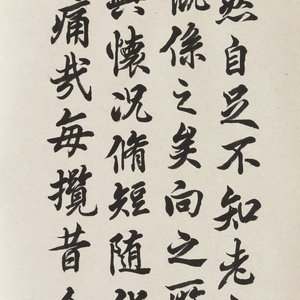 然自足不知老
慨係之矣向之所
懷況脩短随
痛哉每攬昔